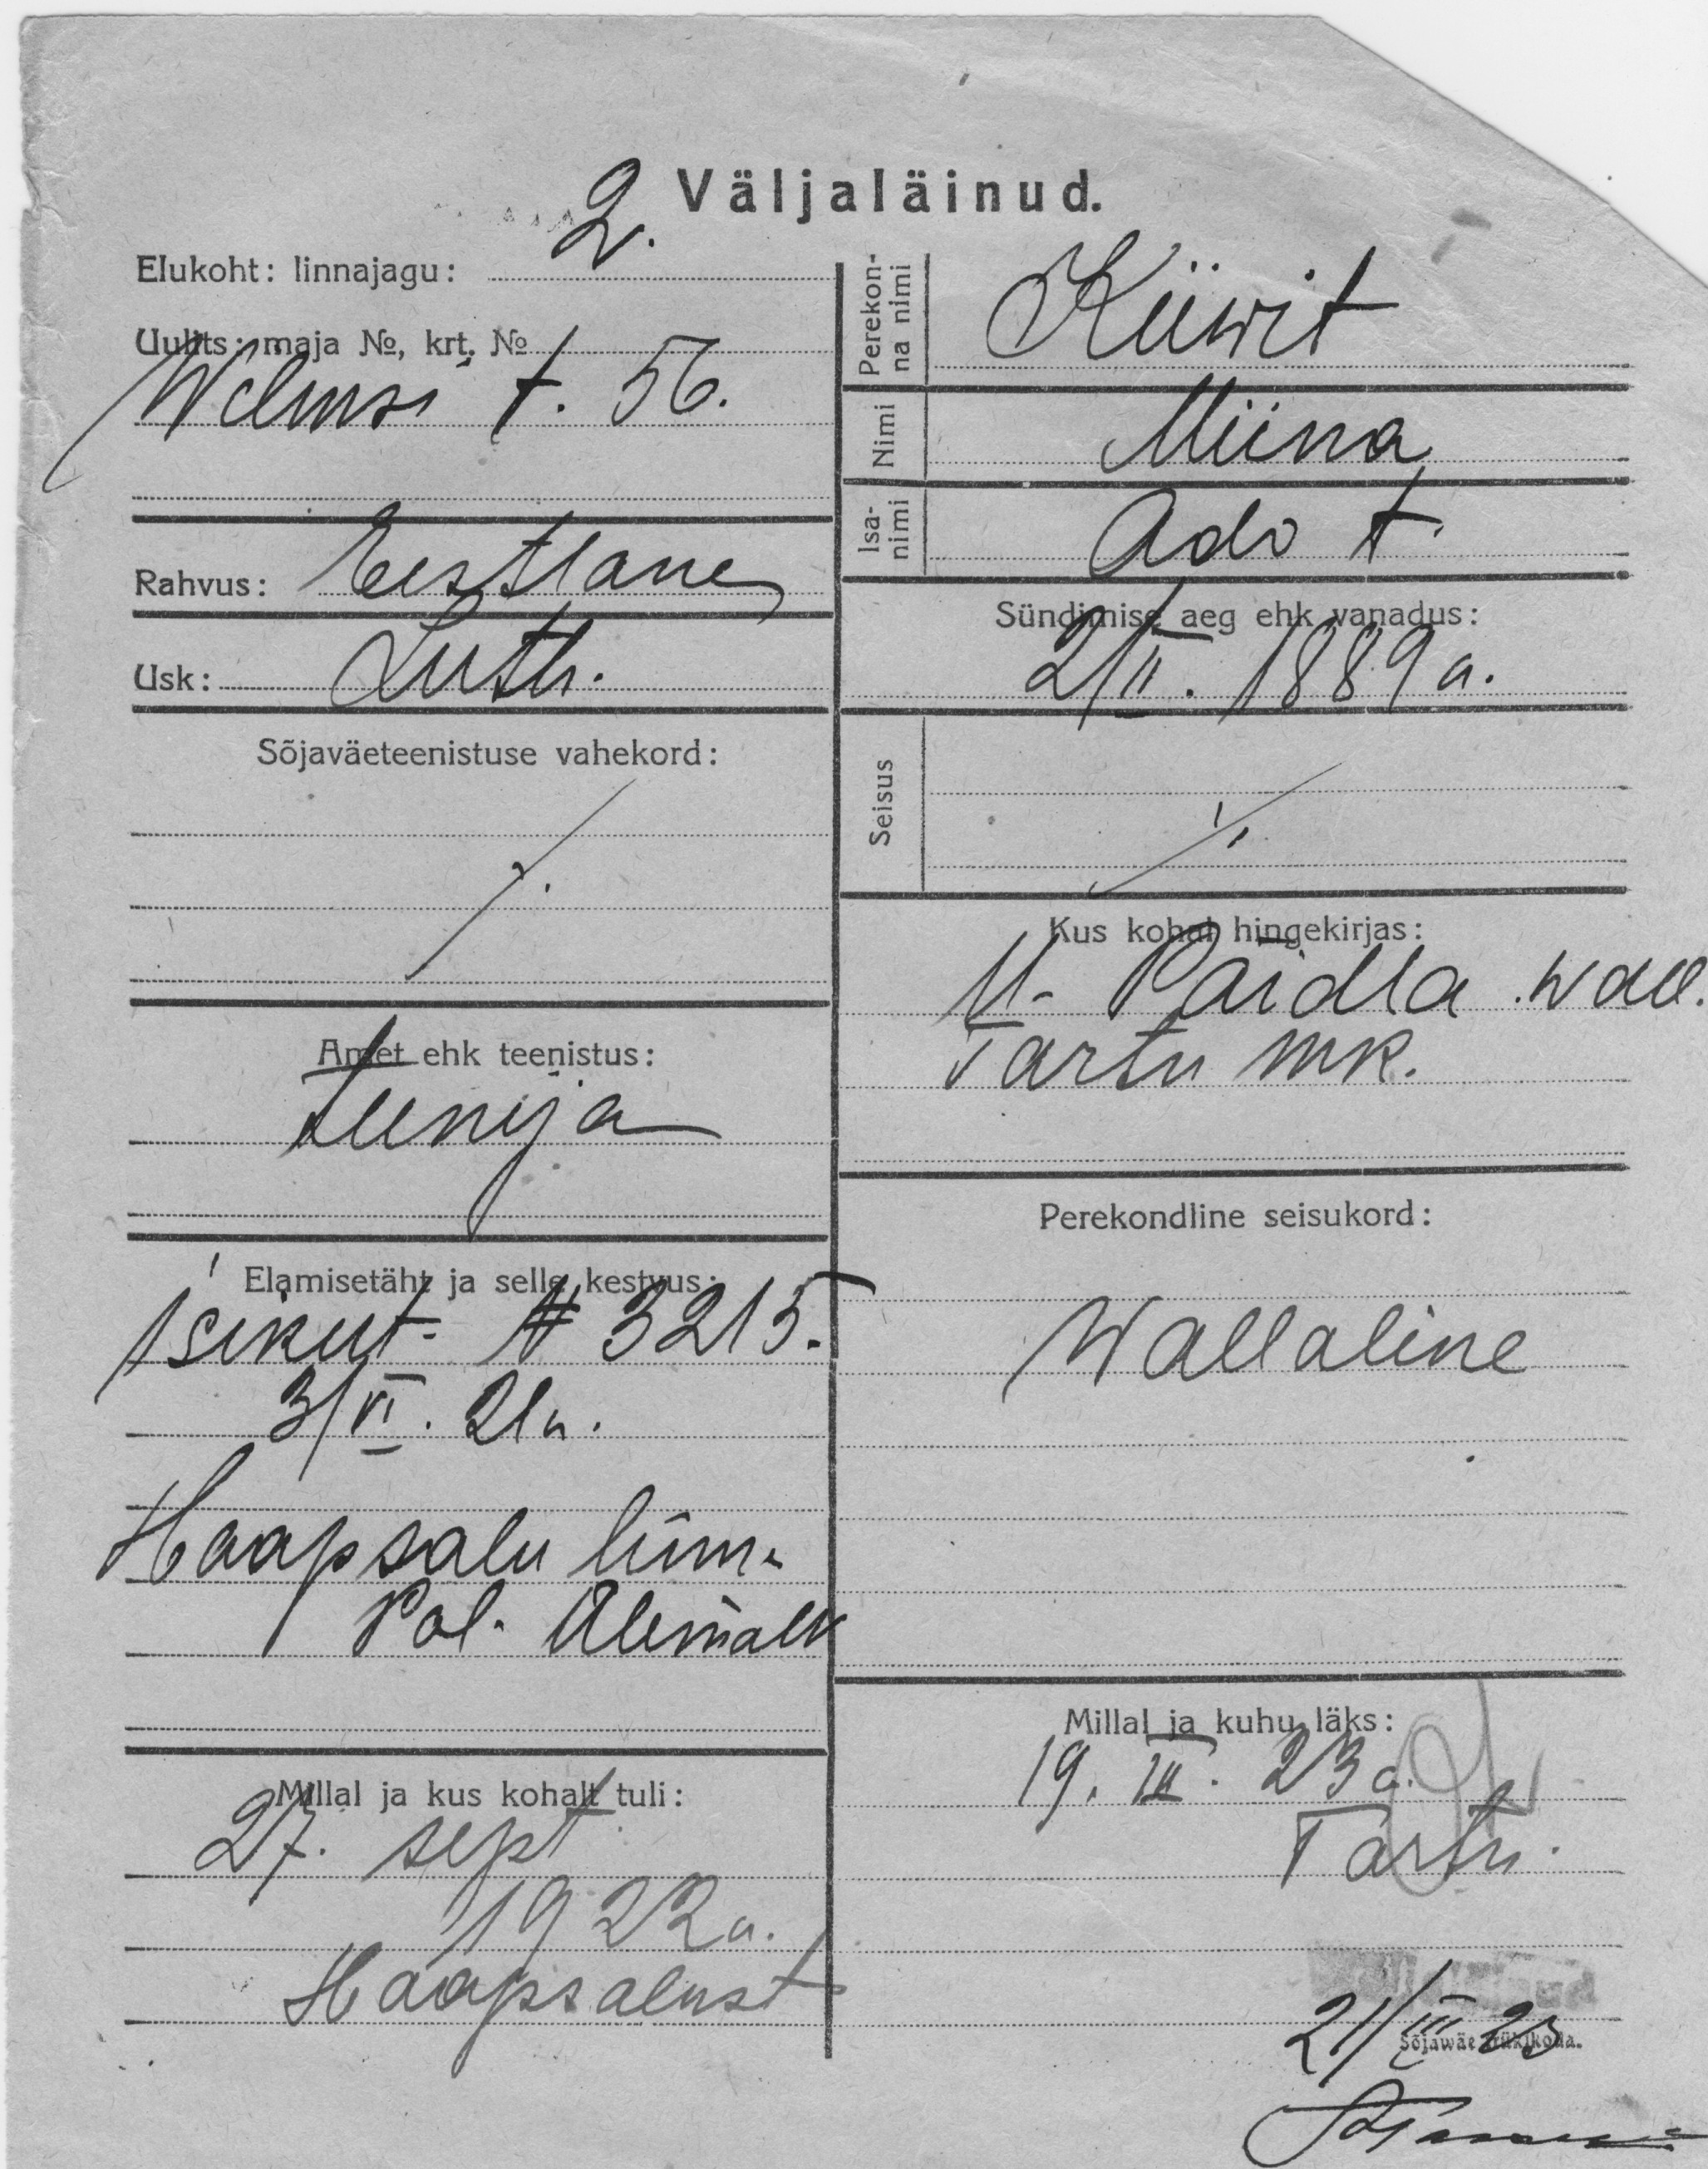 Väljaläinud.
Elukoht: linnajagu: 2.
Uulits: maja №, krt. №
Wilmsi t. 56.
Rahvus: Eestlane
Usk: Luth.
Sõjaväeteenistuse vahekord:
Amet ehk teenistus:
teenija
Elamisetäht ja selle kestvus:
Isikut. № 3215.
3/VI. 21 a.
Haapsalu linn.
Pol. Ülemalt
Millal ja kus kohalt tuli:
27. sept
1922 a.
Haapsalust
Perekon-
na nimi
Kiiwit
Nimi Miina
Isa-
nimi
Ado t.
Sündimise aeg ehk vanadus:
2/II. 1889 a.
Seisus
Kus kohal hingekirjas:
Paidla wall.
Tartu mk.
Perekondline seisukord:
Wallaline
Millal ja kuhu läks:
19. III. 23 a.
Tartu.
21/III 23
Sõjawäe trükikoda.